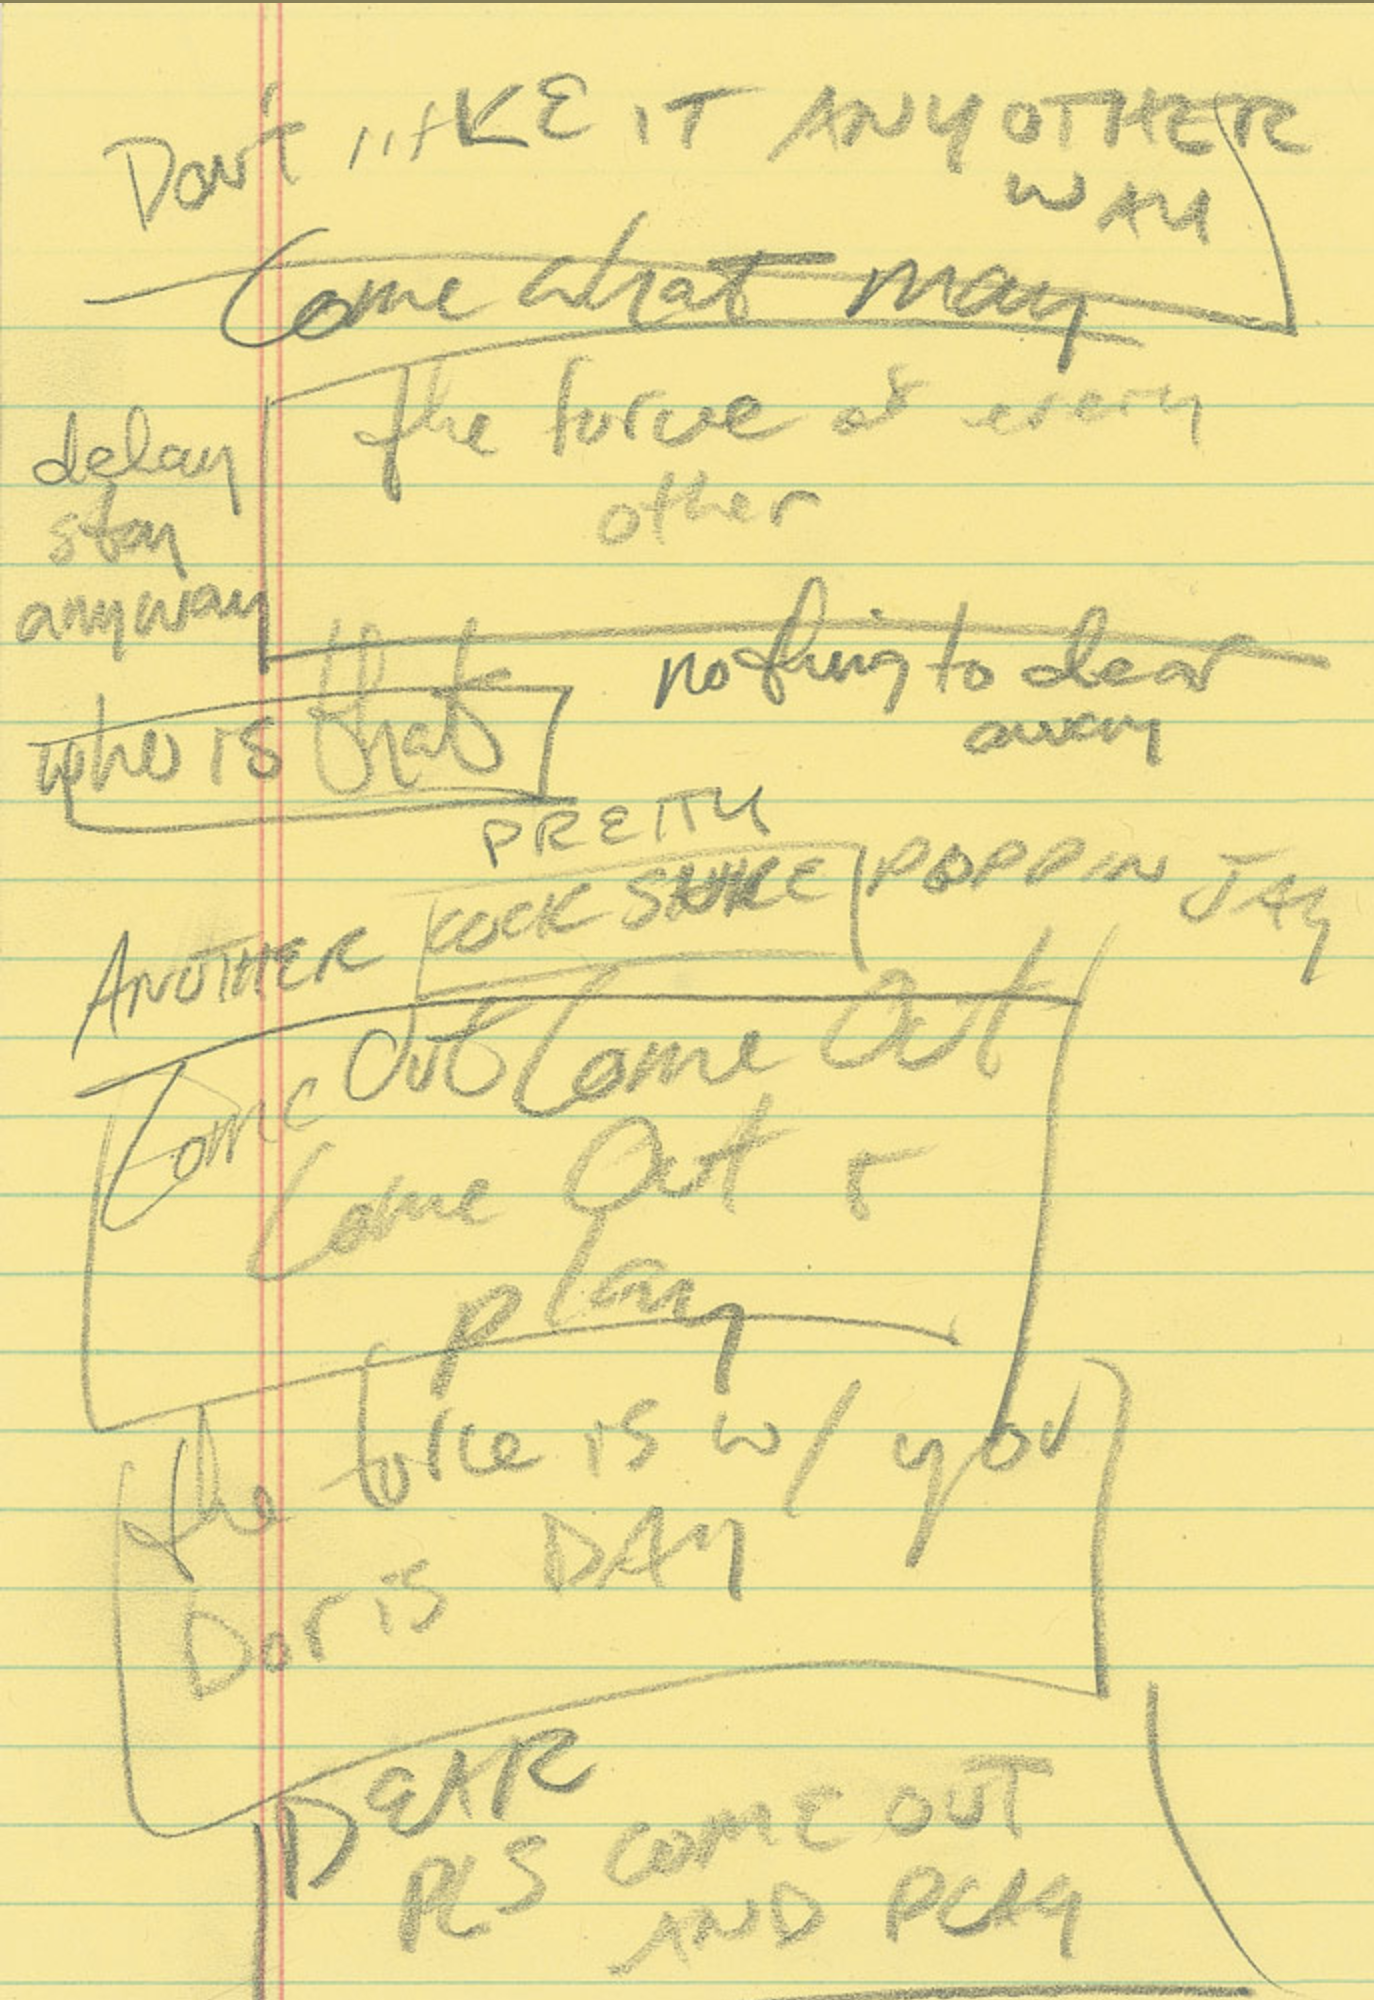 Don't LIKE IT ANY OTHER
WAY
Come what may
the force of every
other
delay
stay
anyway
nothing to clear
away
who is that
PRETTY
ANOTHER COCK SURE POPPIN JAY
Come Out Come Out
Come Out &
play
the force is w/ you
Doris DAY
DEAR
PLS COME OUT
AND PLAY